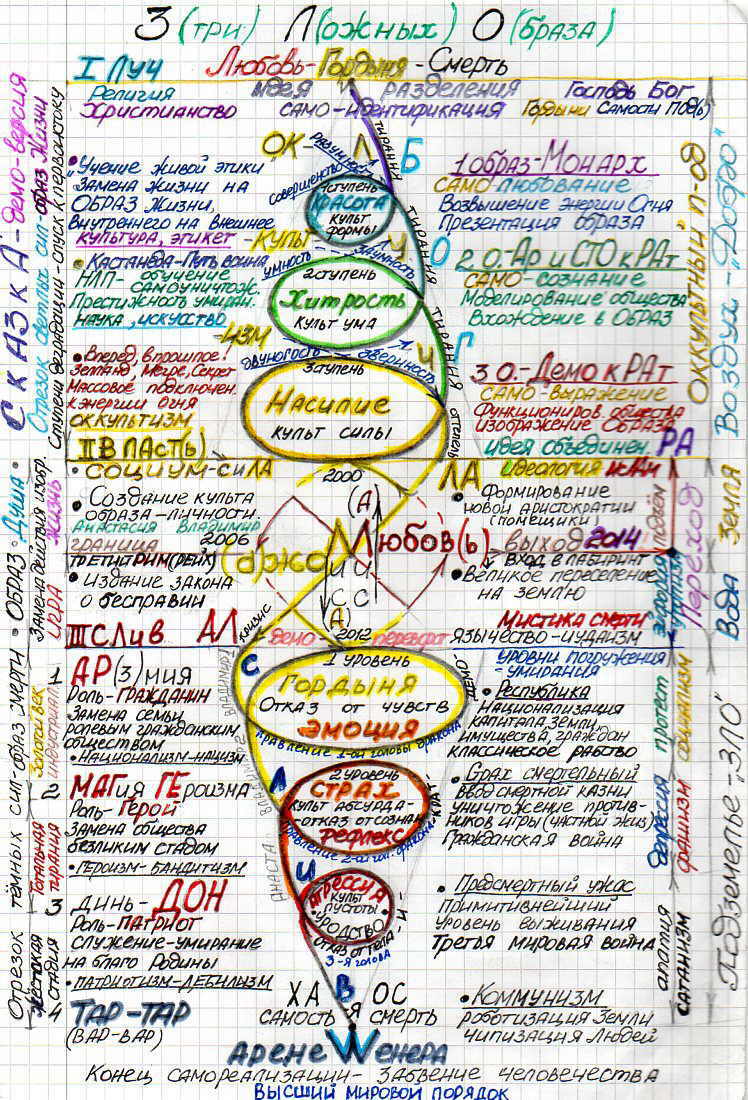 З (три) Л(ожных) О(браза)
I ЛУЧ
Любовь-Гордыня-Смерть
Религия
Христианство
идея разделения
само-идентификация
Господь Бог
Гордыни Самости
ОК-
Л
Б
тирания
разумность
совершенство
1 ступень
КРАСОТА
культ
формы
"Учение живой этики
Замена жизни на
ОБРАЗ Жизни,
Внутреннего на Внешнее
культура, этикет
-КУЛЬТ
1 образ-Монарх
САМО-любование
Возвышение энергии Огня
Презентация образа
О
тирания
• Кастанеда-Путь воина
НЛП-обучение
самоуничтож.
Престижность умиран.
наука, искусство
умность
заумность
2 ступень
Хитрость
культ ума
-ИЗМ
2 О.-АРиСТОкРАт
САМО-сознание
Моделирование общества
Вхождение в ОБРАЗ
Г
тирания
• Вперед, в прошлое!
Зеланд, Мегре, Секрет
Массовое подключен.
к энергии огня
оккультизм
двуногость
3 ступень
Насилие
культ силы
оттепель
3 О.-ДемокРАт
САМО-выражение
Функциониров. общества
изображение ОБРАЗА
идея объединен. РА
II ВЛАСТЬ)
• СОЦИУМ-СИЛА
2000
ЛА
идеология
• Создание культа
образа-личности.
Анастасия Владимир
граница 2006
ТРЕТИЙ РИМ(РЕЙХ)
• Издание закона
о бесправии
(А)
Любов(ь)
И И
С С
(А)
• Формирование
новой аристократии
(помещики)
выход 2014
• Вход в лабиринт
• Великое переселение
на землю
подъём
Переход
III СЛИВ
АЛ
кризис
демо 2012 переворот
Мистика смерти
язычество-иудаизм
1 АР(З)МИЯ
Роль-Гражданин
Замена семьи
ролевым гражданским
обществом
• национализм-нацизм
С
1 уровень
ГОРДЫНЯ
Отказ от чувств
ЭМОЦИЯ
правление 1-ой головы дракона
ДЕМО-
уровни погружения
-умирания
• Республика
Национализация
капитала, земли,
имущества, граждан
классическое рабство
2 МАГия ГЕроизма
Роль-Герой
Замена общества
безликим стадом
• героизм-бандитизм
Л
2 уровень
СТРАХ
культ абсурда-
-отказ от сознан.
РЕФЛЕКС
правление 2-ой гол. дракона
-КРАТ-
• Страх смертельный
ввод смертной казни
уничтожение против-
ников игры (частной жиз)
Гражданская война
3 ДИНЬ-ДОН
Роль-Патриот
служение-умирание
на благо Родины
• патриотизм-дебилизм
И
АГРЕССИЯ
культ
пустоты
•УРОДСТВО•
отказ от тела
3-я голова
-И-
• Предсмертный ужас
примитивнейший
уровень выживания
Третья мировая война
4 ТАР-ТАР
(ВАР-ВАР)
В
ХА ОС
самость-Я смерть
• Коммунизм
роботизация Земли
чипизация Людей
АРЕНЕ WЕНЕРА
Конец самореализации-забвение человечества
ВЫСШИЙ МИРОВОЙ ПОРЯДОК
СкАЗкА-демо-версия
Отрезок светлых сил-образ Жизни
Ступени деградации-спуск к первоистоку
Отрезок тёмных сил-образ смерти • ОБРАЗ • Душа •
Замена действия изобр.
ИГРА
жизнь
Золотой век
индустриализ.
Тотальная
тирания
Жестокая
стадия
ОККУЛЬТНЫЙ п-од
Воздух-"Добро"
Земля
Вода
Подземелье-"ЗЛО"
протест
социализм
депрессия
фашизм
апатия
сатанизм